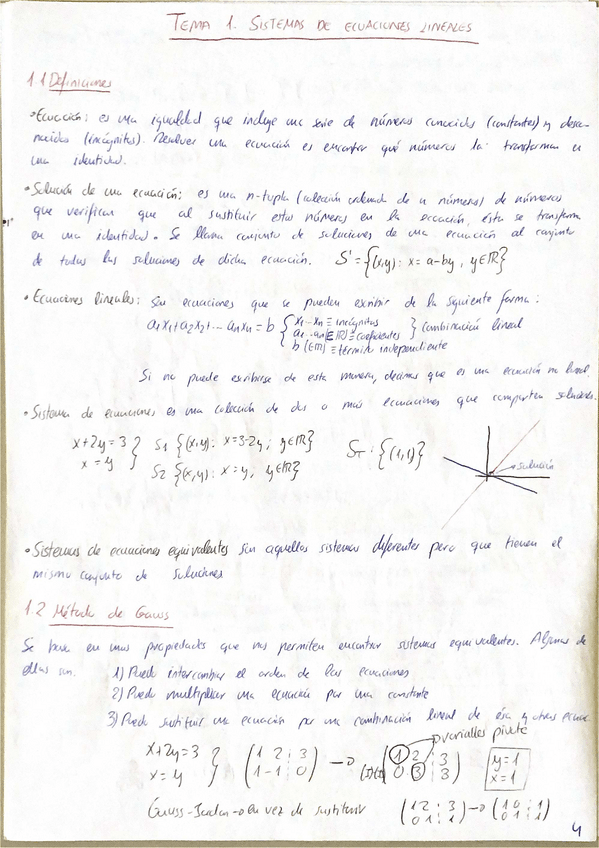 TEMA 1. SISTEMAS DE ECUACIONES LINEALES
1.1 Definiciones
• Ecuación: es una igualdad que incluye una serie de números conocidos (constantes) y desco-
nocidos (incógnitas). Resolver una ecuación es encontrar qué números la transforman en
una identidad.
• Solución de una ecuación: es una n-tupla (colección ordenada de n números) de números
que verifican que al sustituir estos números en la ecuación, ésta se transforma
en una identidad. Se llama conjunto de soluciones de una ecuación al conjunto
de todas las soluciones de dicha ecuación. S = {(x,y): x = a-by, y∈ℝ}
• Ecuaciones lineales: son ecuaciones que se pueden escribir de la siguiente forma:
a₁x₁+a₂x₂+... aₙxₙ = b { x₁...xₙ ≡ incógnitas
a₁...aₙ(∈ℝ) ≡ coeficientes } combinación lineal
b (∈ℝ) ≡ término independiente
Si no puede escribirse de esta manera, decimos que es una ecuación no lineal
• Sistema de ecuaciones es una colección de dos o más ecuaciones que comparten soluciones.
x+2y=3 } S₁ {(x,y): x=3-2y; y∈ℝ} Sₜ: {(1,1)}
x=y } S₂ {(x,y): x=y; y∈ℝ}
solución
• Sistemas de ecuaciones equivalentes son aquellos sistemas diferentes pero que tienen el
mismo conjunto de soluciones
1.2 Método de Gauss
Se basa en unas propiedades que nos permiten encontrar sistemas equivalentes. Algunas de
ellas son. 1) Puedo intercambiar el orden de las ecuaciones
2) Puedo multiplicar una ecuación por una constante
3) Puedo sustituir una ecuación por una combinación lineal de ésa y otras
variables pivote
x+2y=3 } (1 2 | 3) → (1 2 | 3) y=1
x=y } (1 -1 | 0) (0 3 | 3) x=1
Gauss-Jordan → en vez de sustituir (1 2 | 3) → (1 0 | 1)
(0 1 | 1) (0 1 | 1)
4